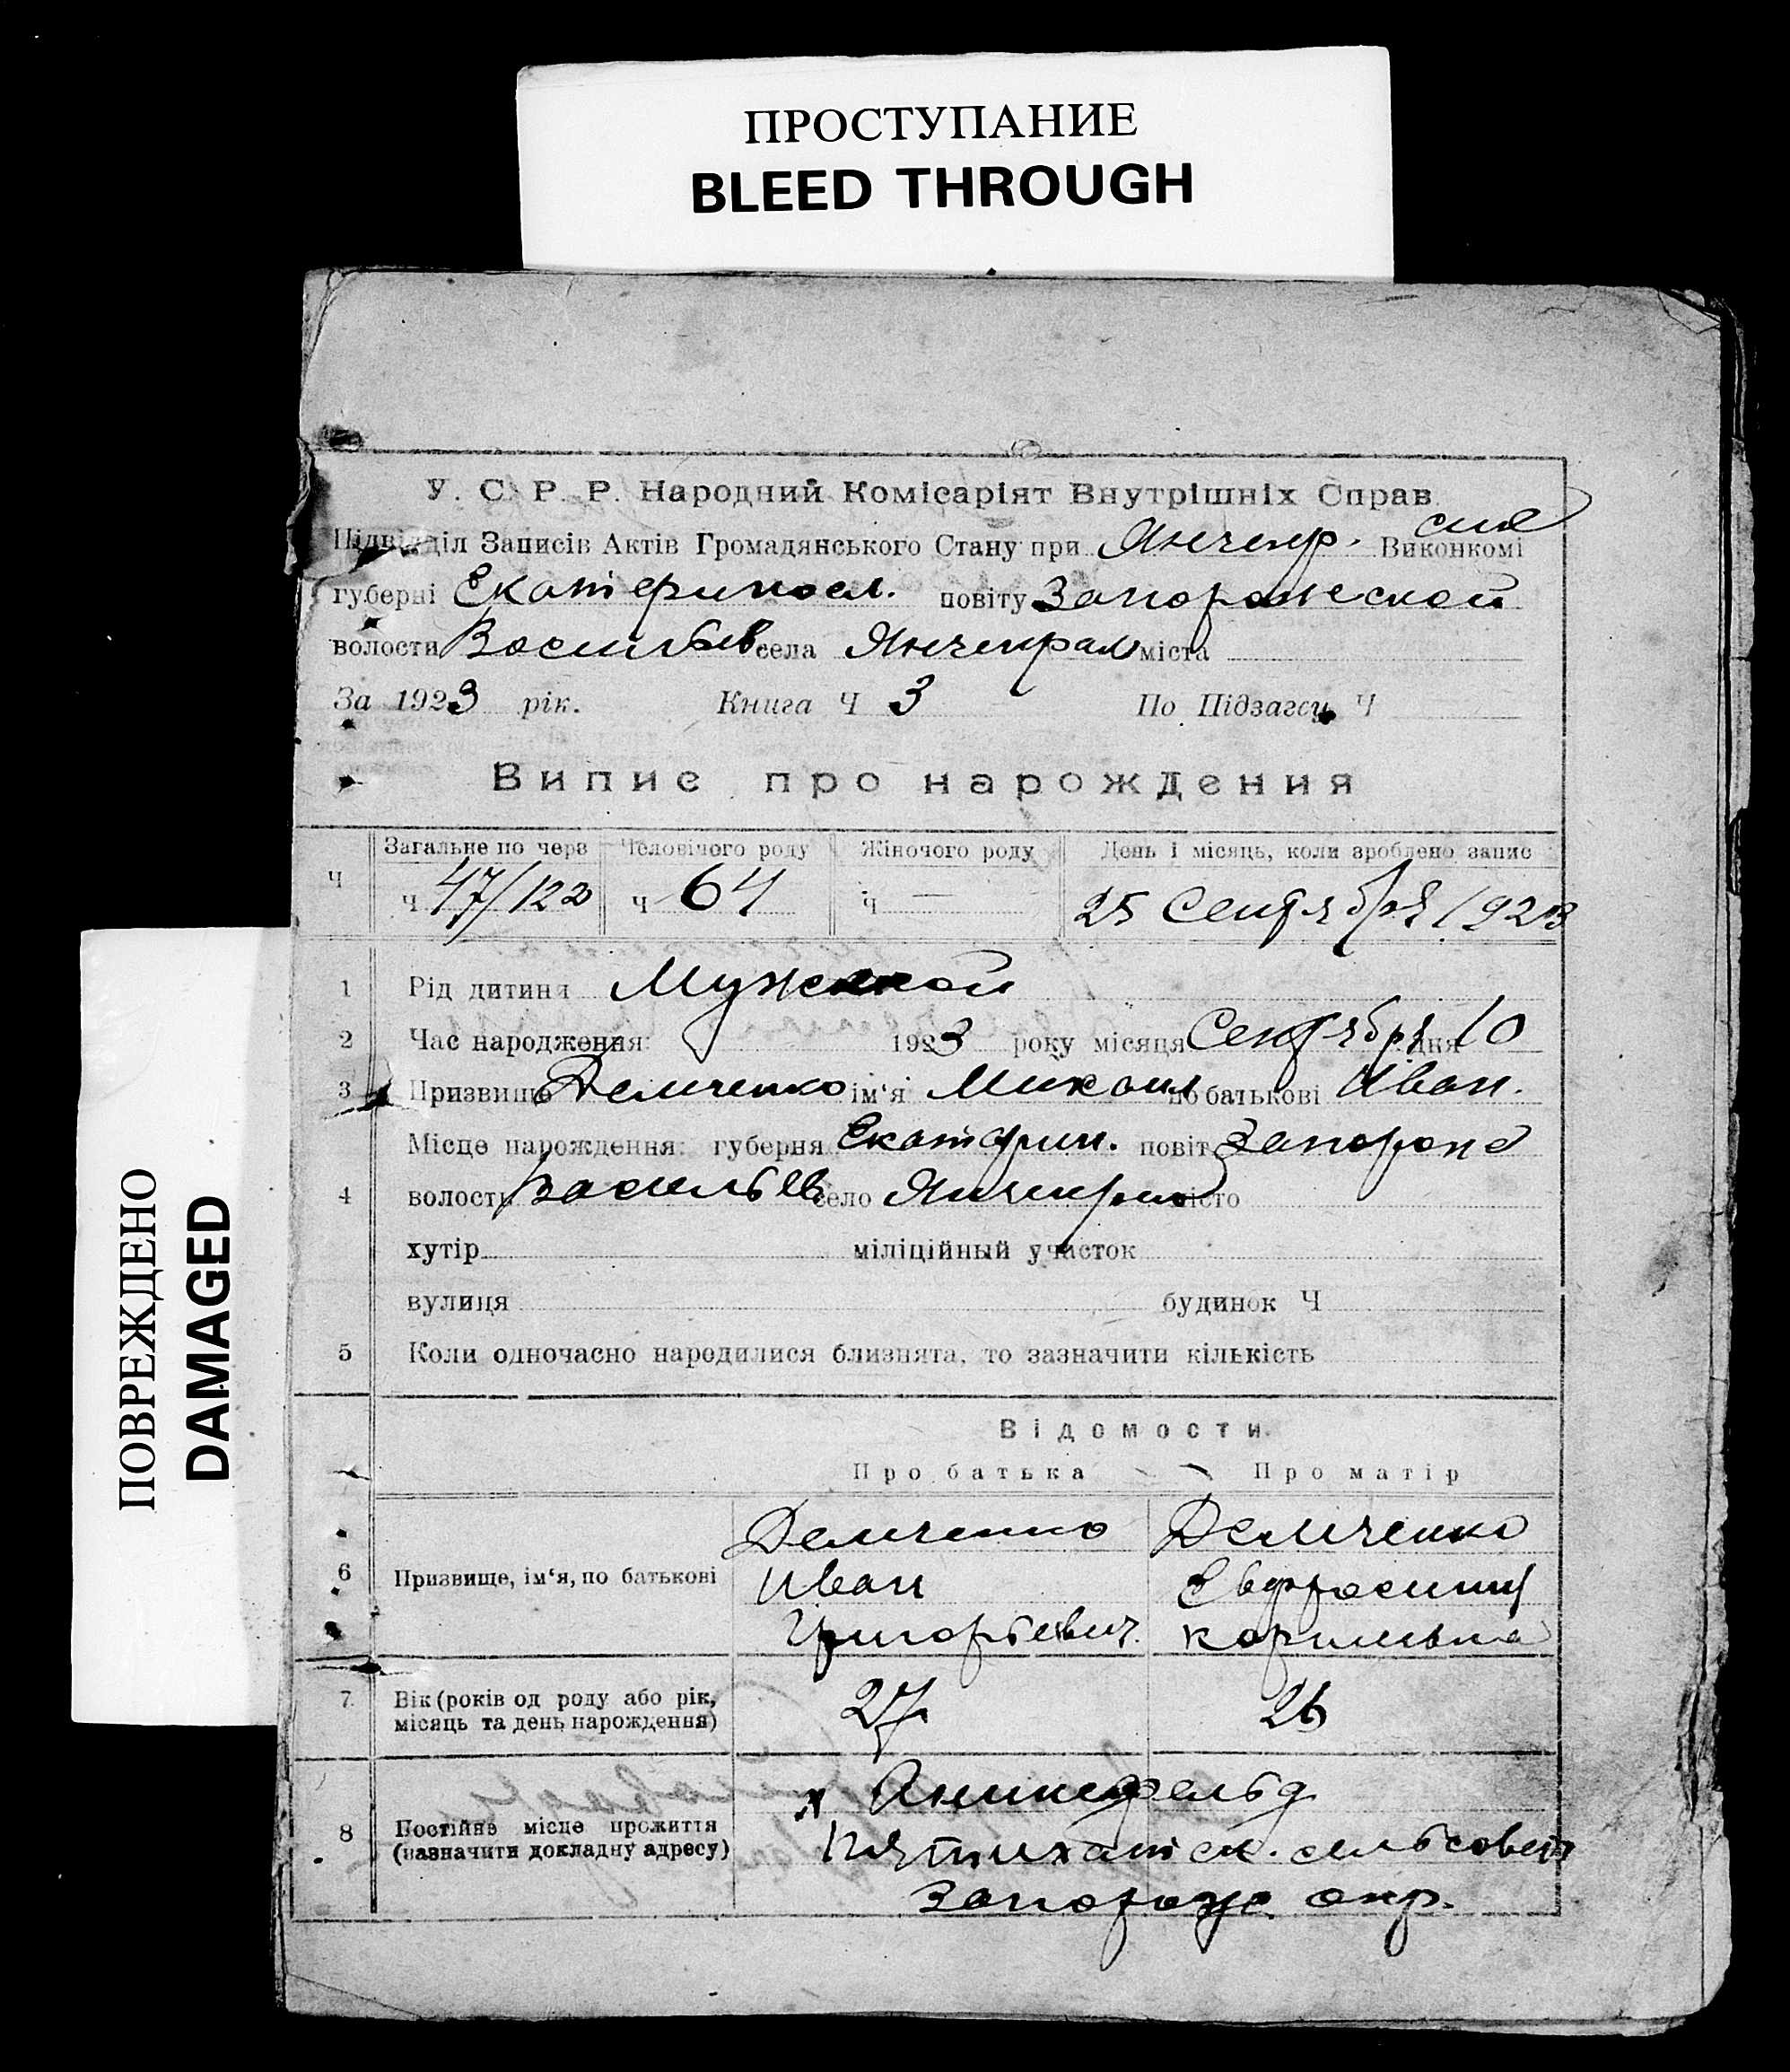 ПРОСТУПАНИЕ
BLEED THROUGH
ПОВРЕЖДЕНО
DAMAGED
У. С. Р. Р. Народний Комісаріят Внутрішніх Справ
Підвідділ Записів Актів Громадянського Стану при Янчекр. ском Виконкомі
губерні Екатериносл. повіту Запорожской
волости Васильев села Янчекрак міста
За 1923 рік. Книга Ч 3 По Підзагсу Ч
Випис про народження
Ч Загальне по черв Чоловічого роду Жіночого роду День і місяць, коли зроблено запис
ч 47/122 ч 64 ч — 25 Сентября 1923
1 Рід дитини Мужской
2 Час народження: 1923 року місяця Сентября дня 10
3 Призвище Демченко ім'я Михаил по батькові Иван.
Місце народження: губерня Екатерин. повіт Запорож
4 волость Васильев село Янчекрак місто
хутір міліційный участок
вулиця будинок Ч
5 Коли одночасно народилися близнята, то зазначити кількість
Відомости
Про батька Про матір
Демченко Демченко
6 Призвище, ім'я, по батькові Иван Евфросиния
Григорьевич. Кориливна
7 Вік (років од роду або рік, місяць та день народження) 27 26
х Аникефельд
8 Постійне місце прожиття (назначити докладну адресу) Пятихатск. сельсовет
Запорож. окр.